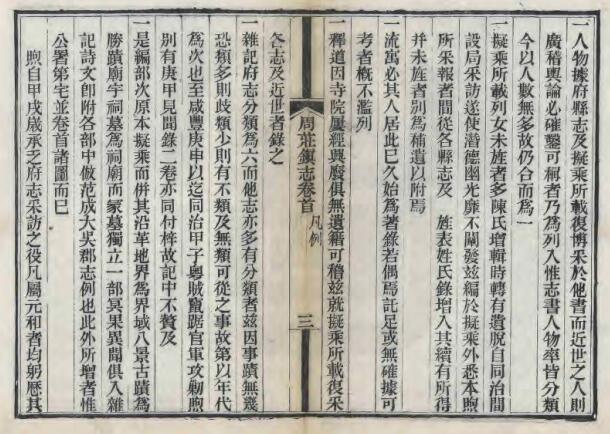 一人物據府縣志及擬乘所載復博采於他書而近世之人則
廣稽輿論必確鑿可稱者乃為列入惟志書人物率皆分類
今以人數無多故仍合而為一
一擬乘所載列女未旌者多陳氏增輯時轉有遺脫自同治間
設局采訪遂使潛德幽光靡不闡發玆編於擬乘外悉本煦
所采報者間從各縣志及 姓表姓氏錄增入其續有所得
并未旌者別為補遺以附焉
一流寓必其人居此已久始為著錄若偶焉託足或無確據可
考者槪不濫列
一釋道因寺院屢經興廢俱無遺籍可稽玆就擬乘所載復采
各志及近世者錄之
周莊鎭志卷首 凡例 三
一雜記府志分類為六而他志亦多有分類者玆因事蹟無幾
恐類多則歧類少則有不類及無類可從之事故第以年代
為次也至咸豐庚申以迄同治甲子粵賊竄踞官軍攻勦煦
別有庚甲見聞錄二卷亦同付梓故記中不贅及
一是編部次原本擬乘而併其沿革地界為界域八景古蹟為
勝蹟廟宇祠墓為祠廟而冢墓獨立一部冥果異聞俱入雜
記詩文卽附各部中倣范成大吳郡志例也此外所增者惟
公署第宅並卷首諸圖而已
煦自甲戌歲承乏府志采訪之役凡屬元和者均躬歷其